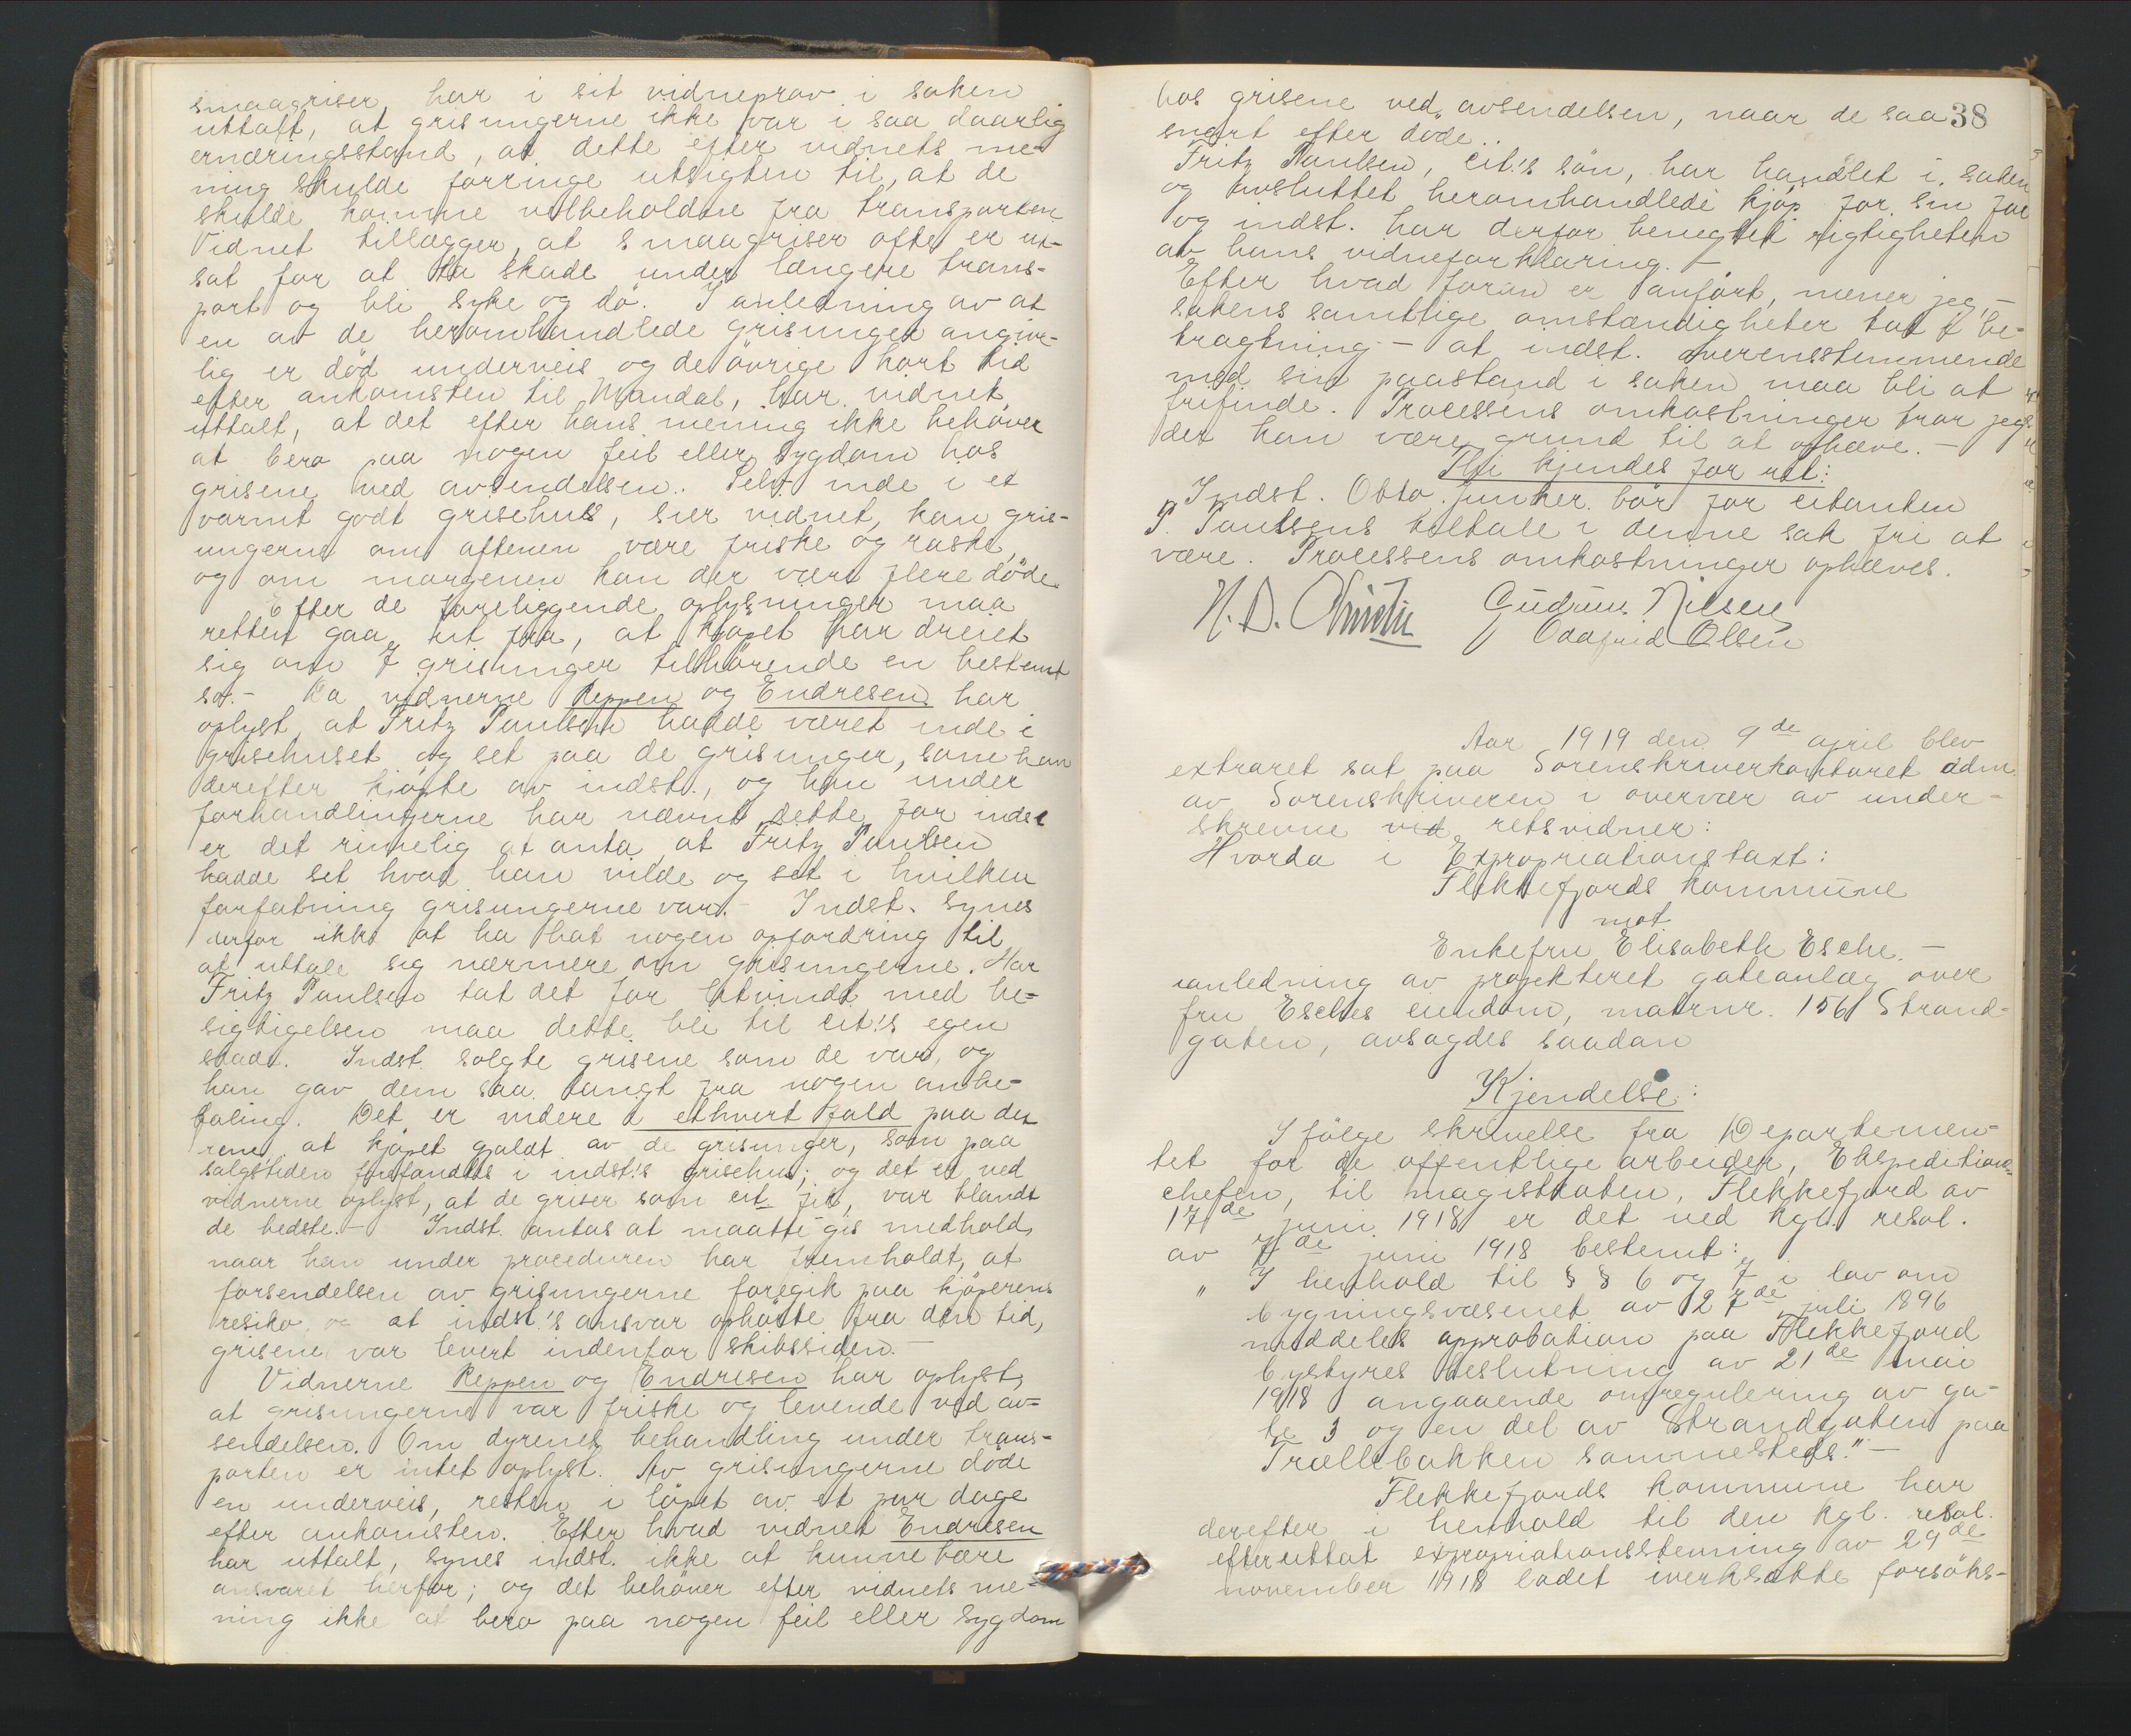 smaagriser, har i sit vidneprov i saken
uttalt, at grisungerne ikke var i saa daarlig
ernæringsstand, at dette efter vidnets me-
ning skulde forringe utsigten til, at de
skulde komme velbeholdne fra transporten
Vidnet tillægger, at smaagriser ofte er ut-
sat for at ta skade under længere trans-
port og bli syke og dö. I anledning av at
en av de heromhandlede grisunger angive-
lig er död underveis og de övrige kort tid
efter ankomsten til Mandal, har vidnet
uttalt, at det efter hans mening ikke behöver
at bero paa nogen feil eller sygdom hos
grisene ved avsendelsen. Selv inde i et
varmt godt grisehus, sier vidnet, kan gris-
ungerne om aftenen være friske og raske,
og om morgenen kan der være flere döde.
Efter de foreliggende oplysninger maa
retten gaa ut fra, at kjöpet har dreiet
sig om 7 grisunger tilhörende en bestemt
so. - Da vidnerne Reppen og Endresen har
oplyst at Fritz Paulsen hadde været inde i
grisehuset og set paa de grisunger, som han
derefter kjöpte av indst., og han under
forhandlingerne har nævnt dette for indst
er det rimelig at anta, at Fritz Paulsen
hadde set hvad han vilde og set i hvilken
forfatning grisungerne var. - Indst. synes
derfor ikke at ha hat nogen opfordring til
at uttale sig nærmere om grisungerne. Har
Fritz Paulsen tat det for letvindt med be-
sigtigelsen maa dette bli til cit.'s egen
skade. Indst. solgte grisene som de var, og
han gav dem saa langt fra nogen anbe-
faling. Det er videre i ethvert fald paa det
rene, at kjöpet gjaldt av de grisunger, som paa
salgstiden forefandtes i indst.'s grisehus; og det er ved
vidnerne oplyst, at de griser som cit fik, var blandt
de bedste. - Indst. antas at maatte gis medhold,
naar han under proceduren har fremholdt, at
forsendelsen av grisungerne foregik paa kjöperens
resiko og at indst.'s ansvar ophörte fra den tid,
grisene var levert indenfor skibssiden. -
Vidnerne Reppen og Endresen har oplyst,
at grisungerne var friske og levende ved av-
sendelsen. Om dyrenes behandling under trans-
porten er intet oplyst. Av grisungerne döde
en underveis, resten i löpet av et par dage
efter ankomsten. Efter hvad vidnet Endresen
har uttalt, synes indst. ikke at kunne bære
ansvaret herfor; og det behöver efter vidnets me-
ning ikke at bero paa nogen feil eller sygdom
38
hos grisene ved avsendelsen, naar de saa
snart efter döde.
Fritz Paulsen, cit.'s sön, har handlet i saken
og avsluttet heromhandlede kjöp for sin far
og indst. har derfor benegtet rigtigheten
av hans vidneforklaring. -
Efter hvad foran er anfört, mener jeg, -
sakens samtlige omstændigheter tat i be-
tragtning - at indst. overensstemmende
med sin paastand i saken maa bli at
frifinde. Processens omkostninger tror jeg
der kan være grund til at ophæve. -
Thi kjendes for ret:
Indst. Otto Junker bör for citanten
P. Paulsens tiltale i denne sak fri at
være. Processens omkostninger ophæves.
H. D. Christie Gudrun Nilsen
Oddfrid Olsen
Aar 1919 den 9de april blev
extraret sat paa Sorenskriverkontoret adm.
av Sorenskriveren i overvær av under-
skrevne vid retsvidner:
Hvorda i Expropriationstaxt:
Flekkefjords kommune
mot
Enkefru Elisabeth Esche. -
ianledning av projekteret gateanlæg over
fru Esches eiendom, matrnr. 156 Strand-
gaten, avsagdes saadan
Kjendelse:
I fölge skrivelse fra Departemen-
tet for de offentlige arbeider, Ekspeditions-
chefen, til magistraten, Flekkefjord av
17de juni 1918 er det ved kgl. resol.
av 7de juni 1918 bestemt:
" I henhold til § § 6 og 7 i lov om
bygningsvæsenet av 27de juli 1896
meddeles approbation paa Flekkefjord
bystyres beslutning av 21de mai
1918 angaaende omregulering av ga-
te 3 og en del av Strandgaten paa
Trællebakken sammesteds." -
Flekkefjords kommune har
derefter i henhold til den kgl. resol.
efter uttat expropriationsstevning av 29de
november 1918 ladet iverksætte forsöks-